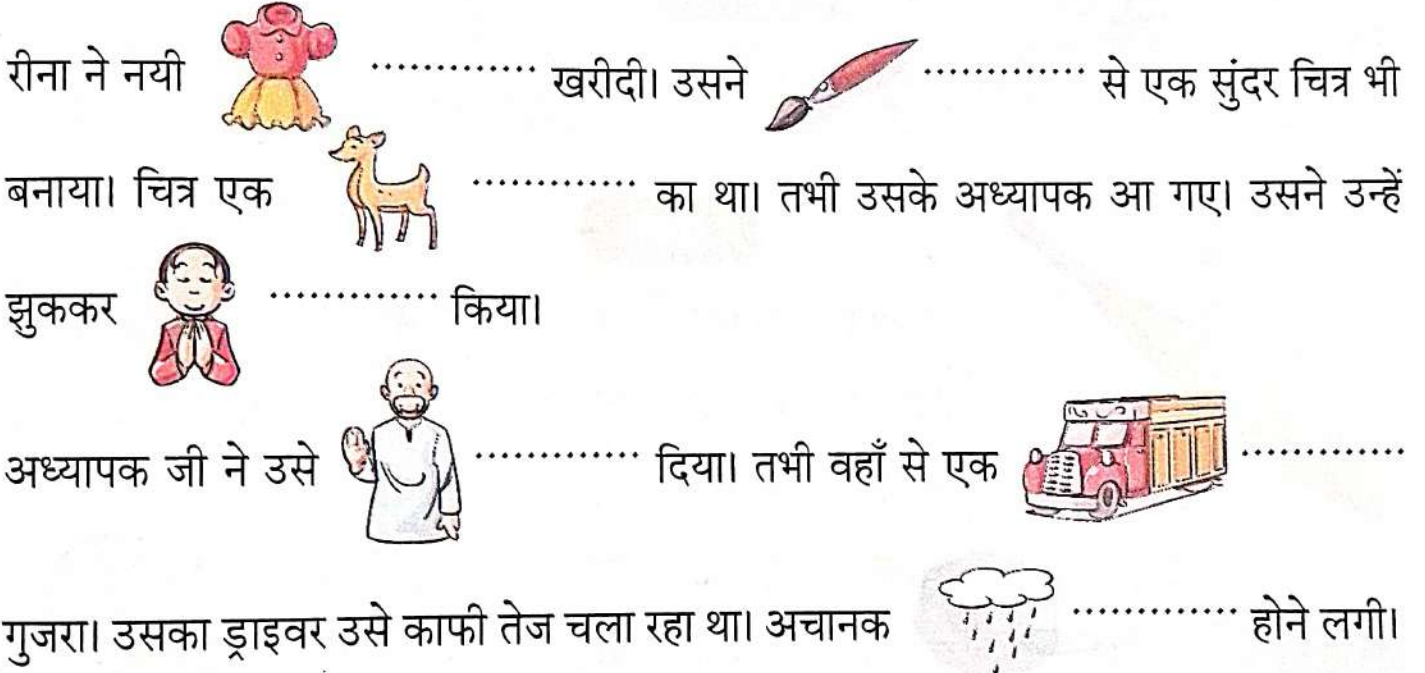 रीना ने नयी .............. खरीदी। उसने .............. से एक सुंदर चित्र भी
बनाया। चित्र एक .............. का था। तभी उसके अध्यापक आ गए। उसने उन्हें
झुककर .............. किया।
अध्यापक जी ने उसे .............. दिया। तभी वहाँ से एक ..............
गुजरा। उसका ड्राइवर उसे काफी तेज चला रहा था। अचानक .............. होने लगी।